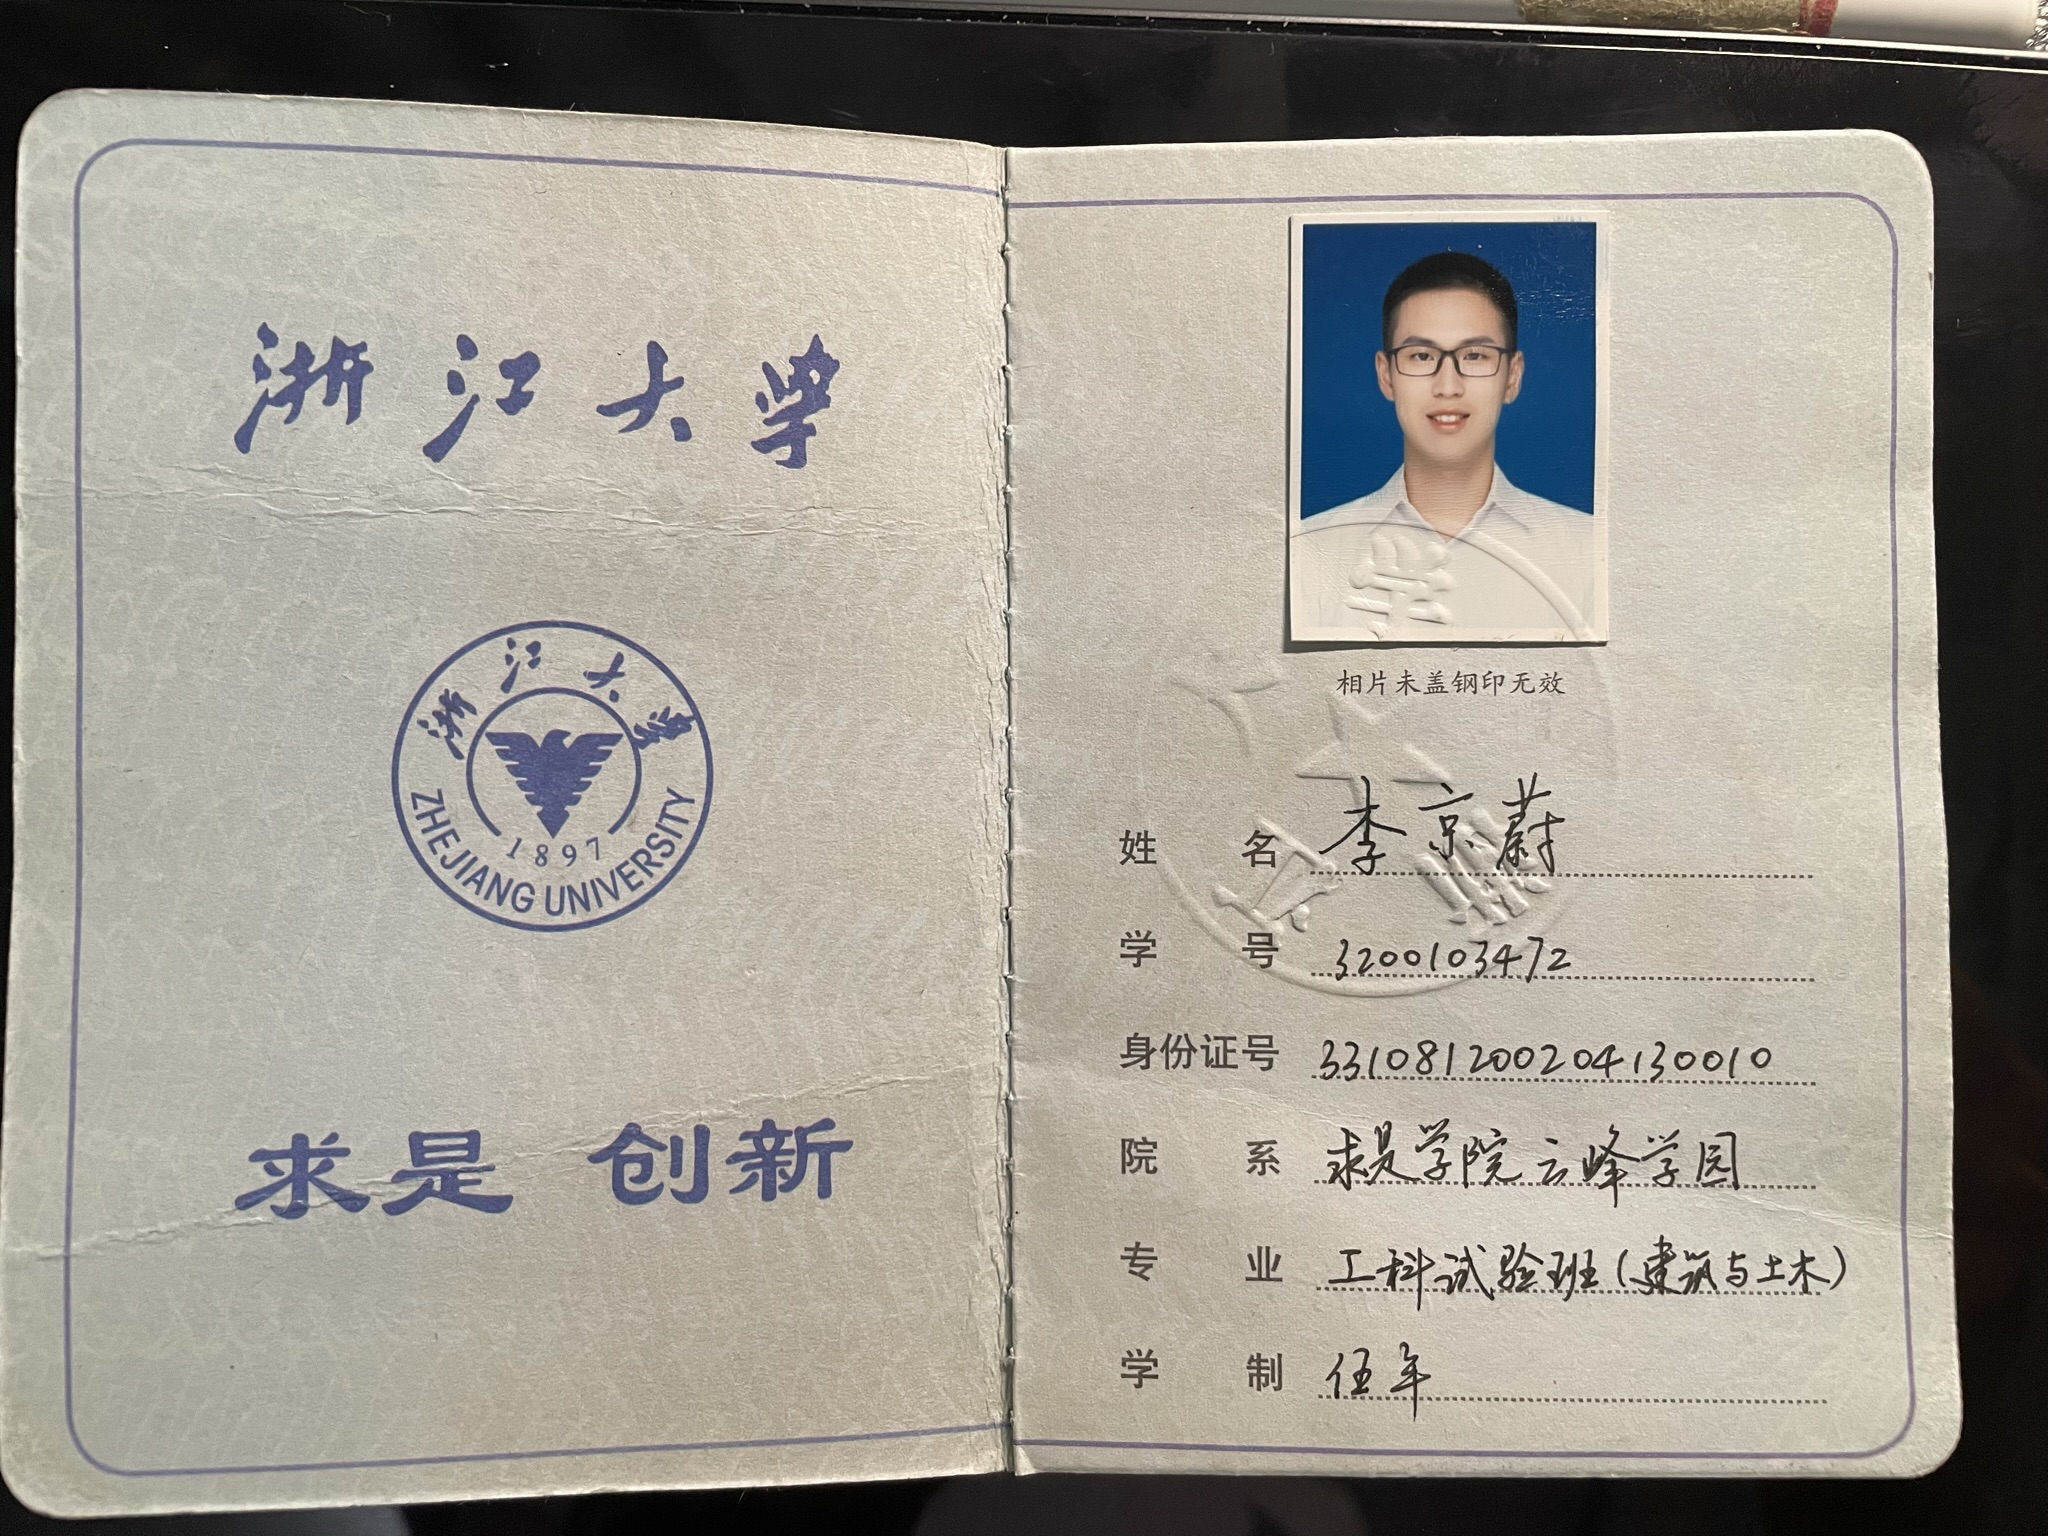 浙江大学
浙江大学
1897
ZHEJIANG UNIVERSITY
求是 创新
学
相片未盖钢印无效
姓 名 李京蔚
学 号 3200103472
身份证号 331081200204130010
院 系 求是学院云峰学园
专 业 工科试验班(建筑与土木)
学 制 伍年